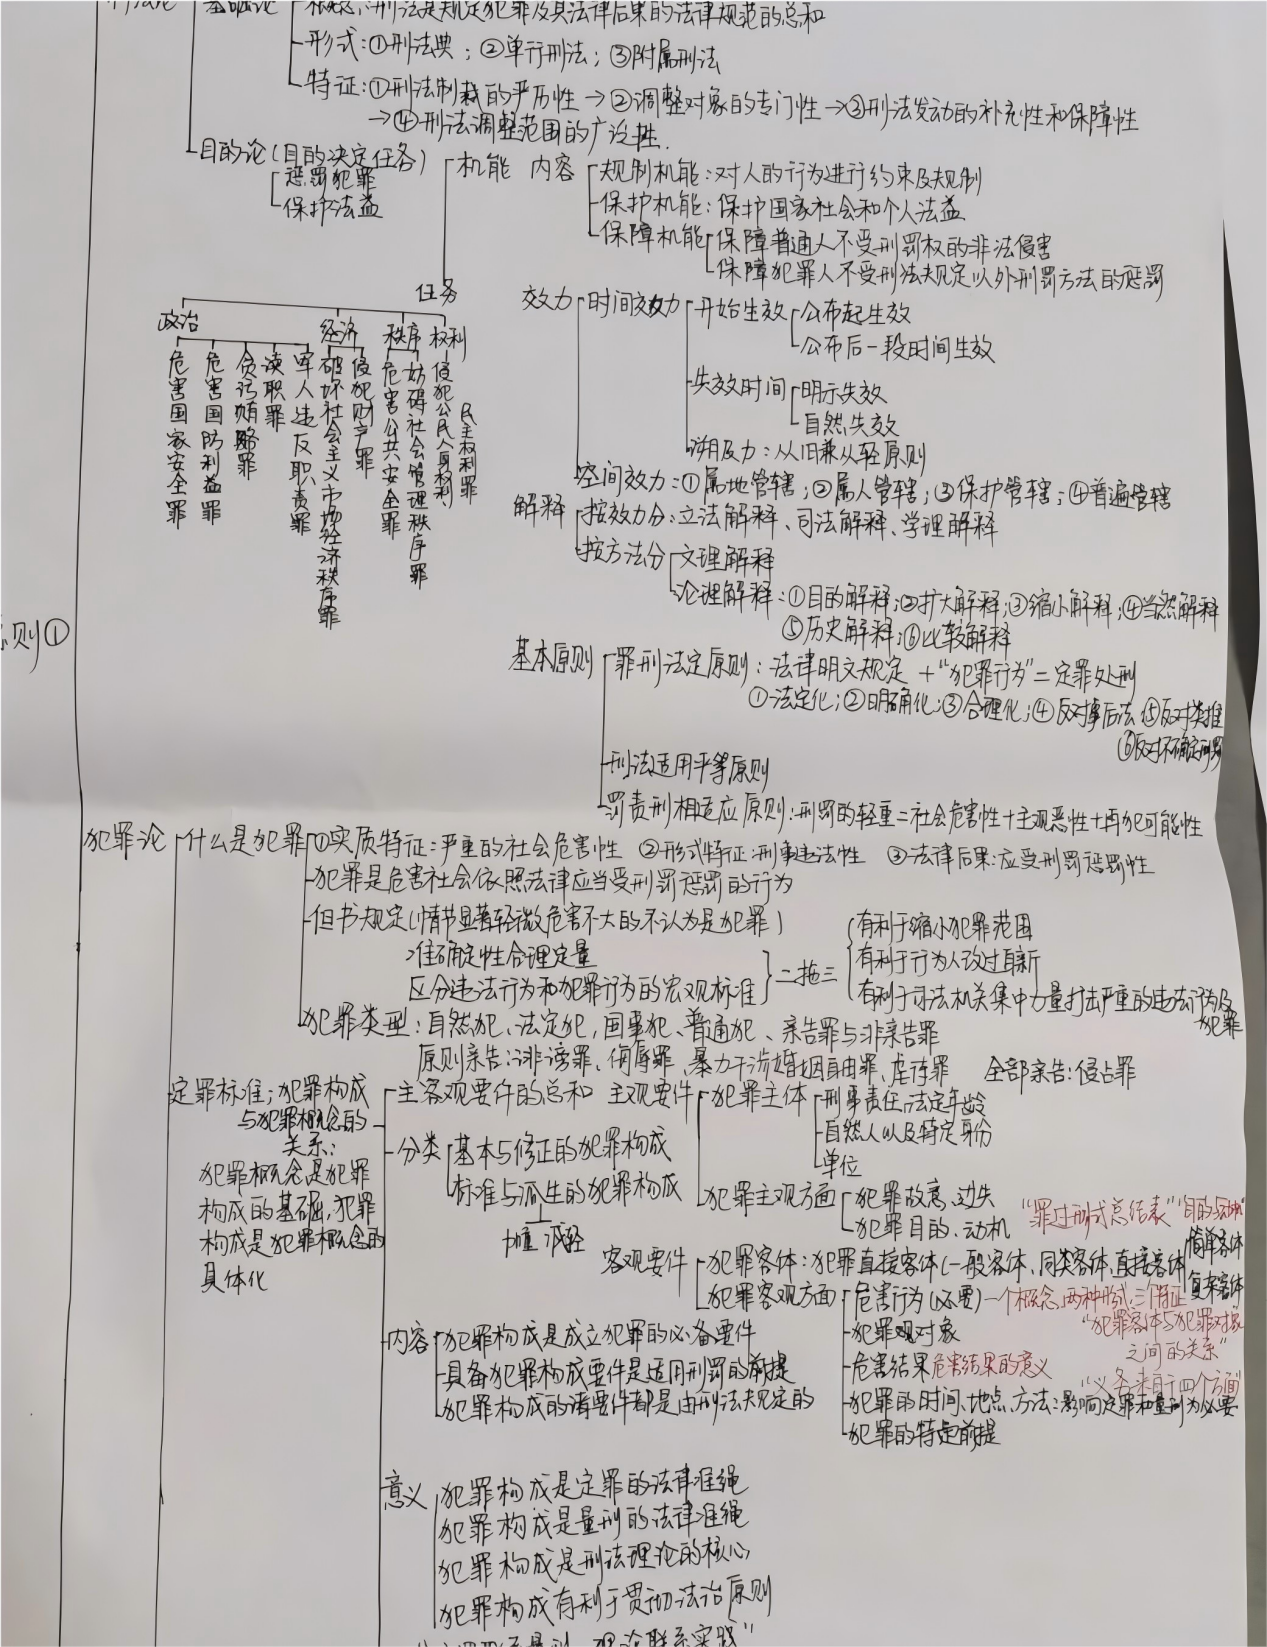 基础论
概念：刑法是规定犯罪及其法律后果的法律规范的总和
形式：①刑法典；②单行刑法；③附属刑法
特征：①刑法制裁的严厉性→②调整对象的专门性→③刑法发动的补充性和保障性
→④刑法调整范围的广泛性.
目的论(目的决定任务)
惩罚犯罪
保护法益
机能 内容
规制机能：对人的行为进行约束及规制
保护机能：保护国家社会和个人法益
保障机能
保障普通人不受刑罚权的非法侵害
保障犯罪人不受刑法规定以外刑罚方法的惩罚
任务
政治
危害国家安全罪
危害国防利益罪
贪污贿赂罪
渎职罪
军人违反职责罪
经济
破坏社会主义市场经济秩序罪
侵犯财产罪
秩序
危害公共安全罪
妨碍社会管理秩序罪
权利
侵犯公民人身权利
民主权利罪
效力
时间效力
开始生效
公布起生效
公布后一段时间生效
失效时间
明示失效
自然失效
溯及力：从旧兼从轻原则
空间效力：①属地管辖；②属人管辖；③保护管辖；④普遍管辖
解释
按效力分：立法解释、司法解释、学理解释
按方法分
文理解释
论理解释：①目的解释；②扩大解释；③缩小解释；④当然解释
⑤历史解释；⑥比较解释
原则①
基本原则
罪刑法定原则：法律明文规定+“犯罪行为”=定罪处刑
①法定化；②明确化；③合理化；④反对事后法 ⑤反对类推
⑥反对不确定刑
刑法适用平等原则
罚责刑相适应原则：刑罚的轻重=社会危害性+主观恶性+再犯可能性
犯罪论
什么是犯罪
①实质特征：严重的社会危害性 ②形式特征：刑事违法性 ③法律后果：应受刑罚惩罚性
犯罪是危害社会依照法律应当受刑罚惩罚的行为
但书规定(情节显著轻微危害不大的不认为是犯罪)
准确定性合理定量
区分违法行为和犯罪行为的宏观标准
二拖三
有利于缩小犯罪范围
有利于行为人改过自新
有利于司法机关集中力量打击严重的违法行为及
犯罪
犯罪类型：自然犯、法定犯，国事犯、普通犯、亲告罪与非亲告罪
原则亲告：诽谤罪、侮辱罪、暴力干涉婚姻自由罪、虐待罪 全部亲告：侵占罪
定罪标准；犯罪构成
与犯罪概念的
关系：
犯罪概念是犯罪
构成的基础，犯罪
构成是犯罪概念的
具体化
主客观要件的总和
主观要件
犯罪主体
刑事责任法定年龄
自然人以及特定身份
单位
犯罪主观方面
犯罪故意、过失
犯罪目的、动机
“罪过形式总结表”“目的与动机”
分类
基本与修正的犯罪构成
标准与派生的犯罪构成
加重 减轻
客观要件
犯罪客体：犯罪直接客体(一般客体、同类客体、直接客体
简单客体
复杂客体
犯罪客观方面
危害行为(必要)一个概念，两种形式，三个特征
“犯罪客体与犯罪对象
之间的关系”
犯罪对象
危害结果 危害结果的意义
“义务来自于四个方面”
犯罪的时间、地点、方法：影响定罪和量刑为必要
犯罪的特定前提
内容
犯罪构成是成立犯罪的必备要件
具备犯罪构成要件是适用刑罚的前提
犯罪构成的诸要件都是由刑法规定的
意义
犯罪构成是定罪的法律准绳
犯罪构成是量刑的法律准绳
犯罪构成是刑法理论的核心
犯罪构成有利于贯彻法治原则
理论联系实践”